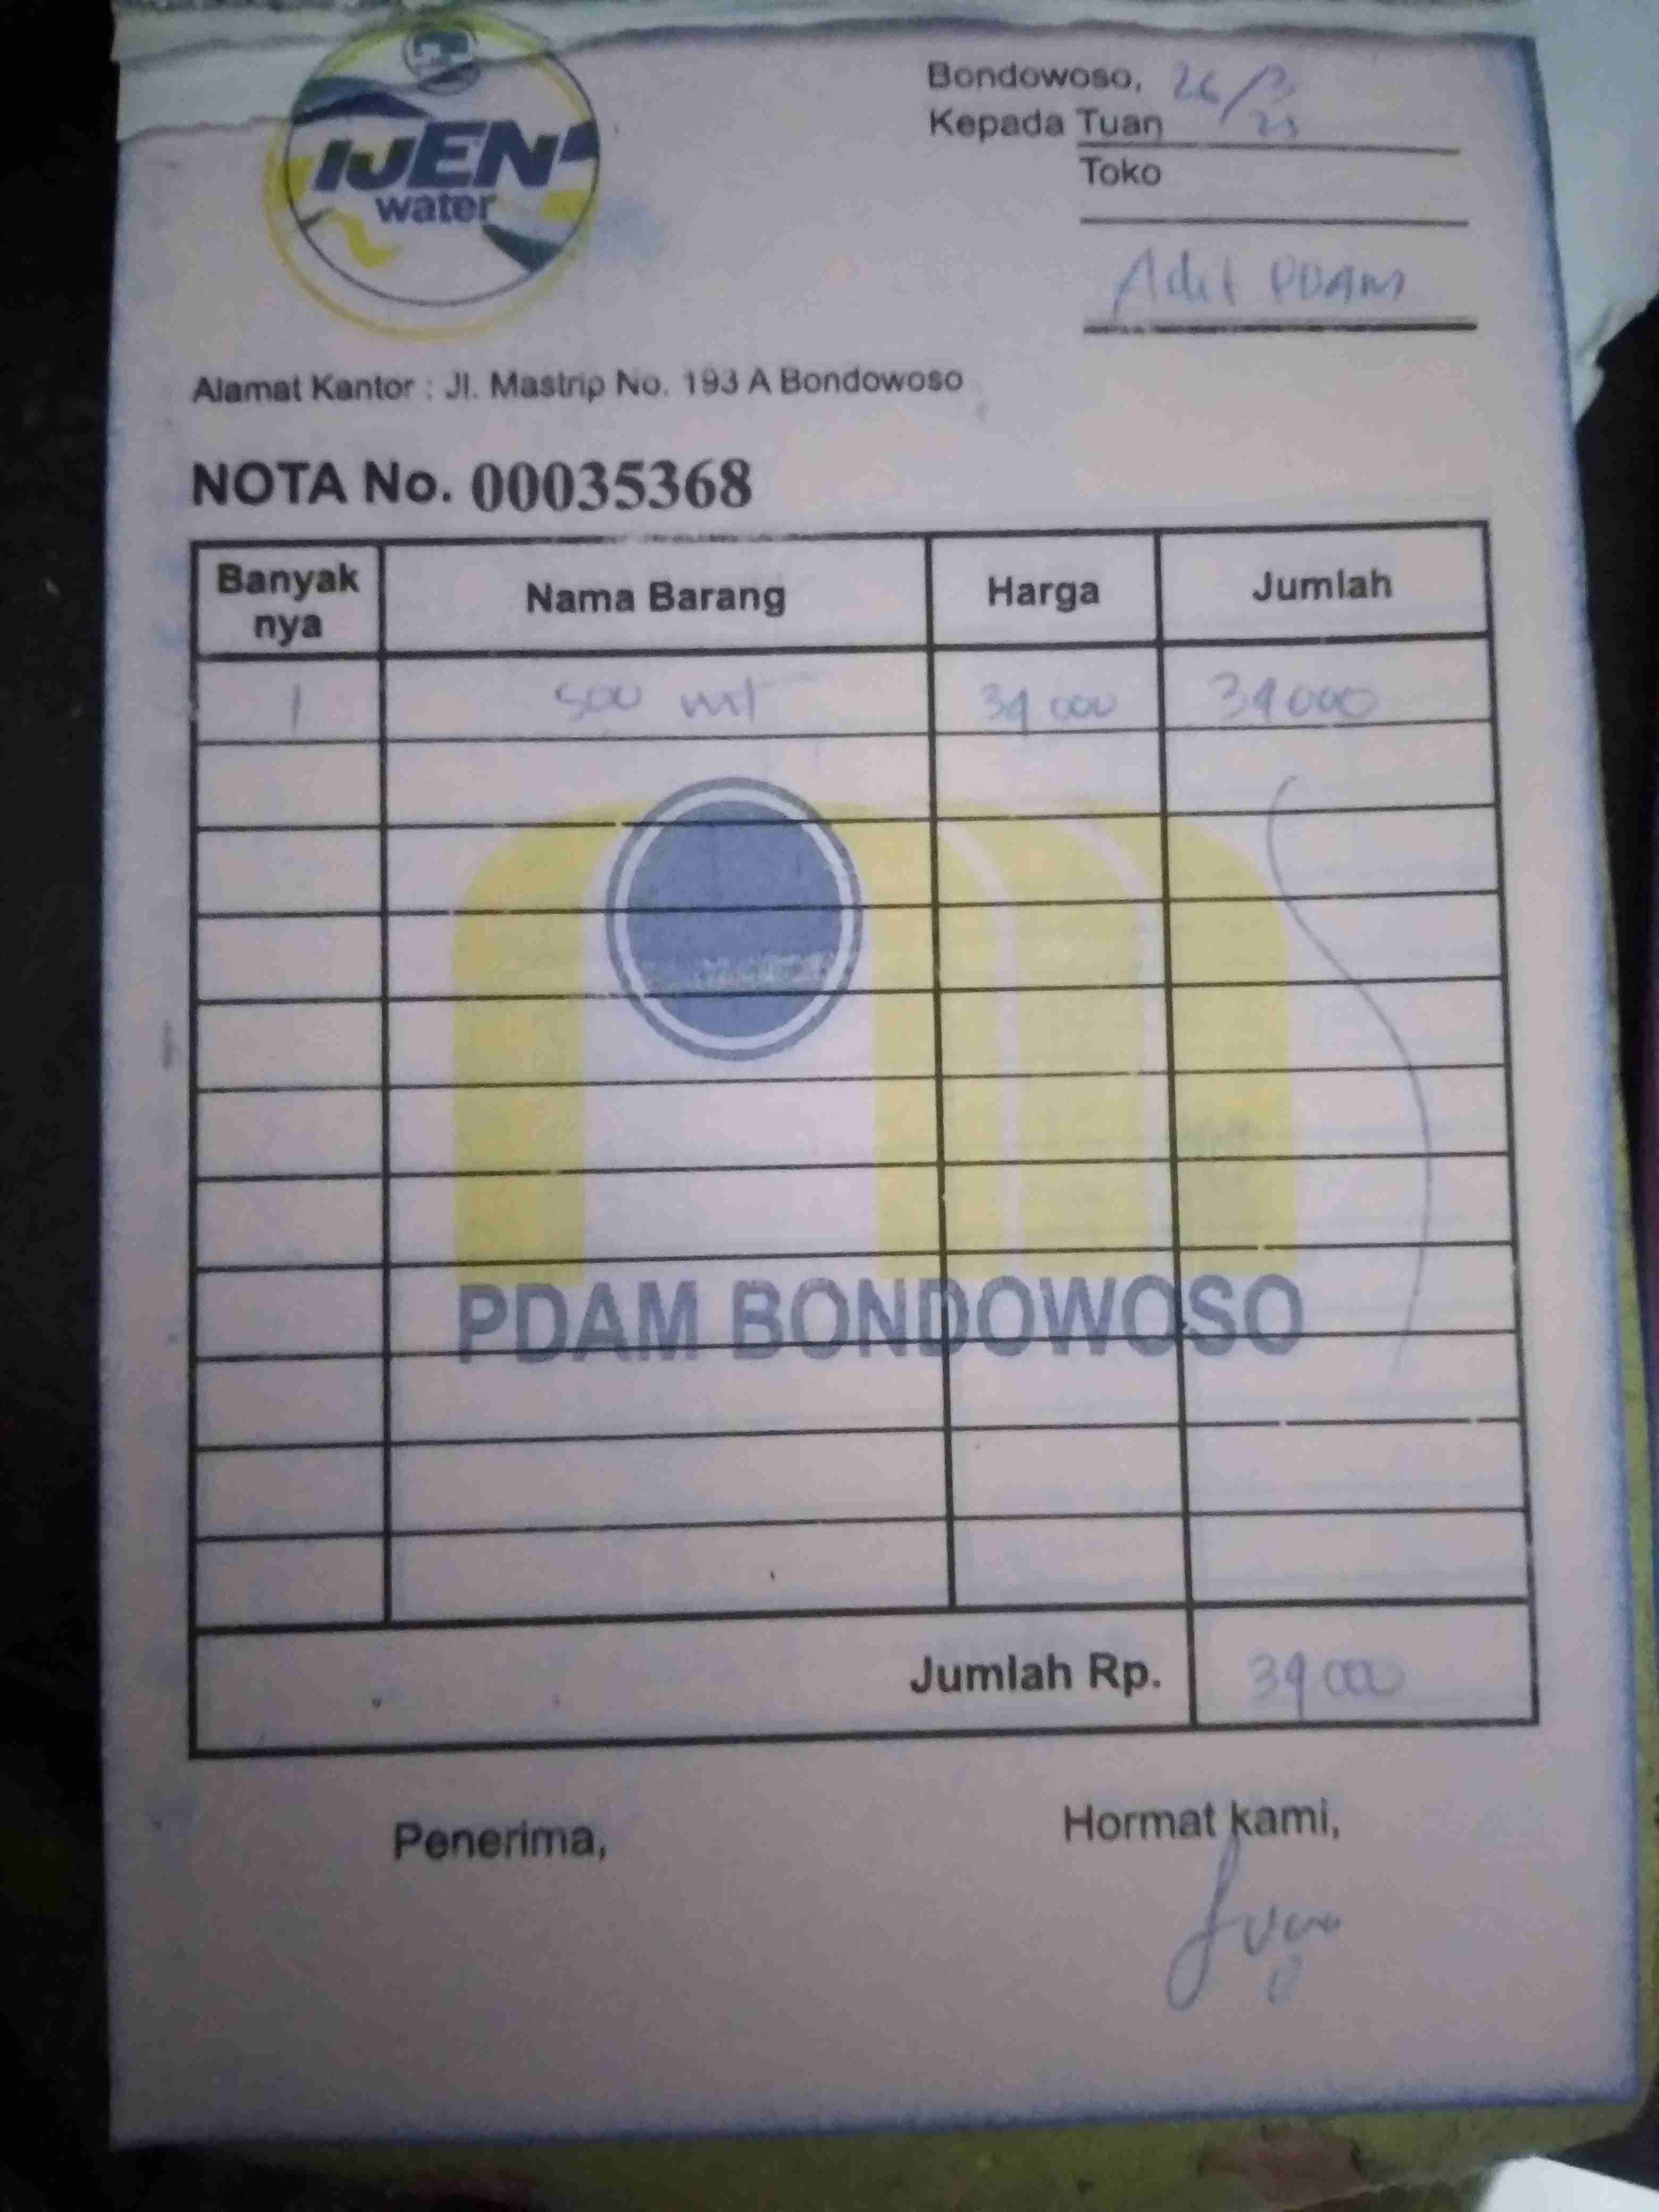 IJEN
water
Bondowoso, 26/3
Kepada Tuan
Toko
Adit PDAM
Alamat Kantor : Jl. Mastrip No. 193 A Bondowoso
NOTA No. 00035368
Banyak nya Nama Barang Harga Jumlah
1 500 ml 39 000 39 000
PDAM BONDOWOSO
Jumlah Rp. 39 000
Penerima, Hormat kami,